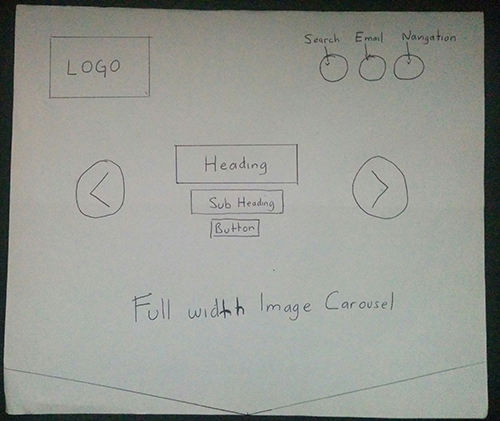 Search Email Navgation
LOGO
Heading
Sub Heading
Button
Full width Image Carousel